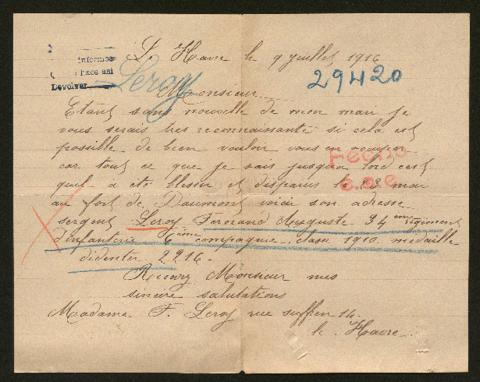 Informes
Para ahi
Devolver
Leroy
Le Havre le 9 juillet 1916
29420
Monsieur
Etant sans nouvelle de mon mari je
vous serais tres reconnaissante si cela est
possible de bien vouloir vous en occuper
car tout ce que je sais jusqu'a
quil a été blesser et disparus le 22 mai
Fecho
au fort de Douaumont voici son adresse
sergent Leroy Fernand Auguste 34 eme régiment
d'infanterie 6ème compagnie classe 1910 medaille
didenter 2216.
Recevez Monsieur mes
sincere salutations
Madame F. Leroy rue suffren 14
le Havre.